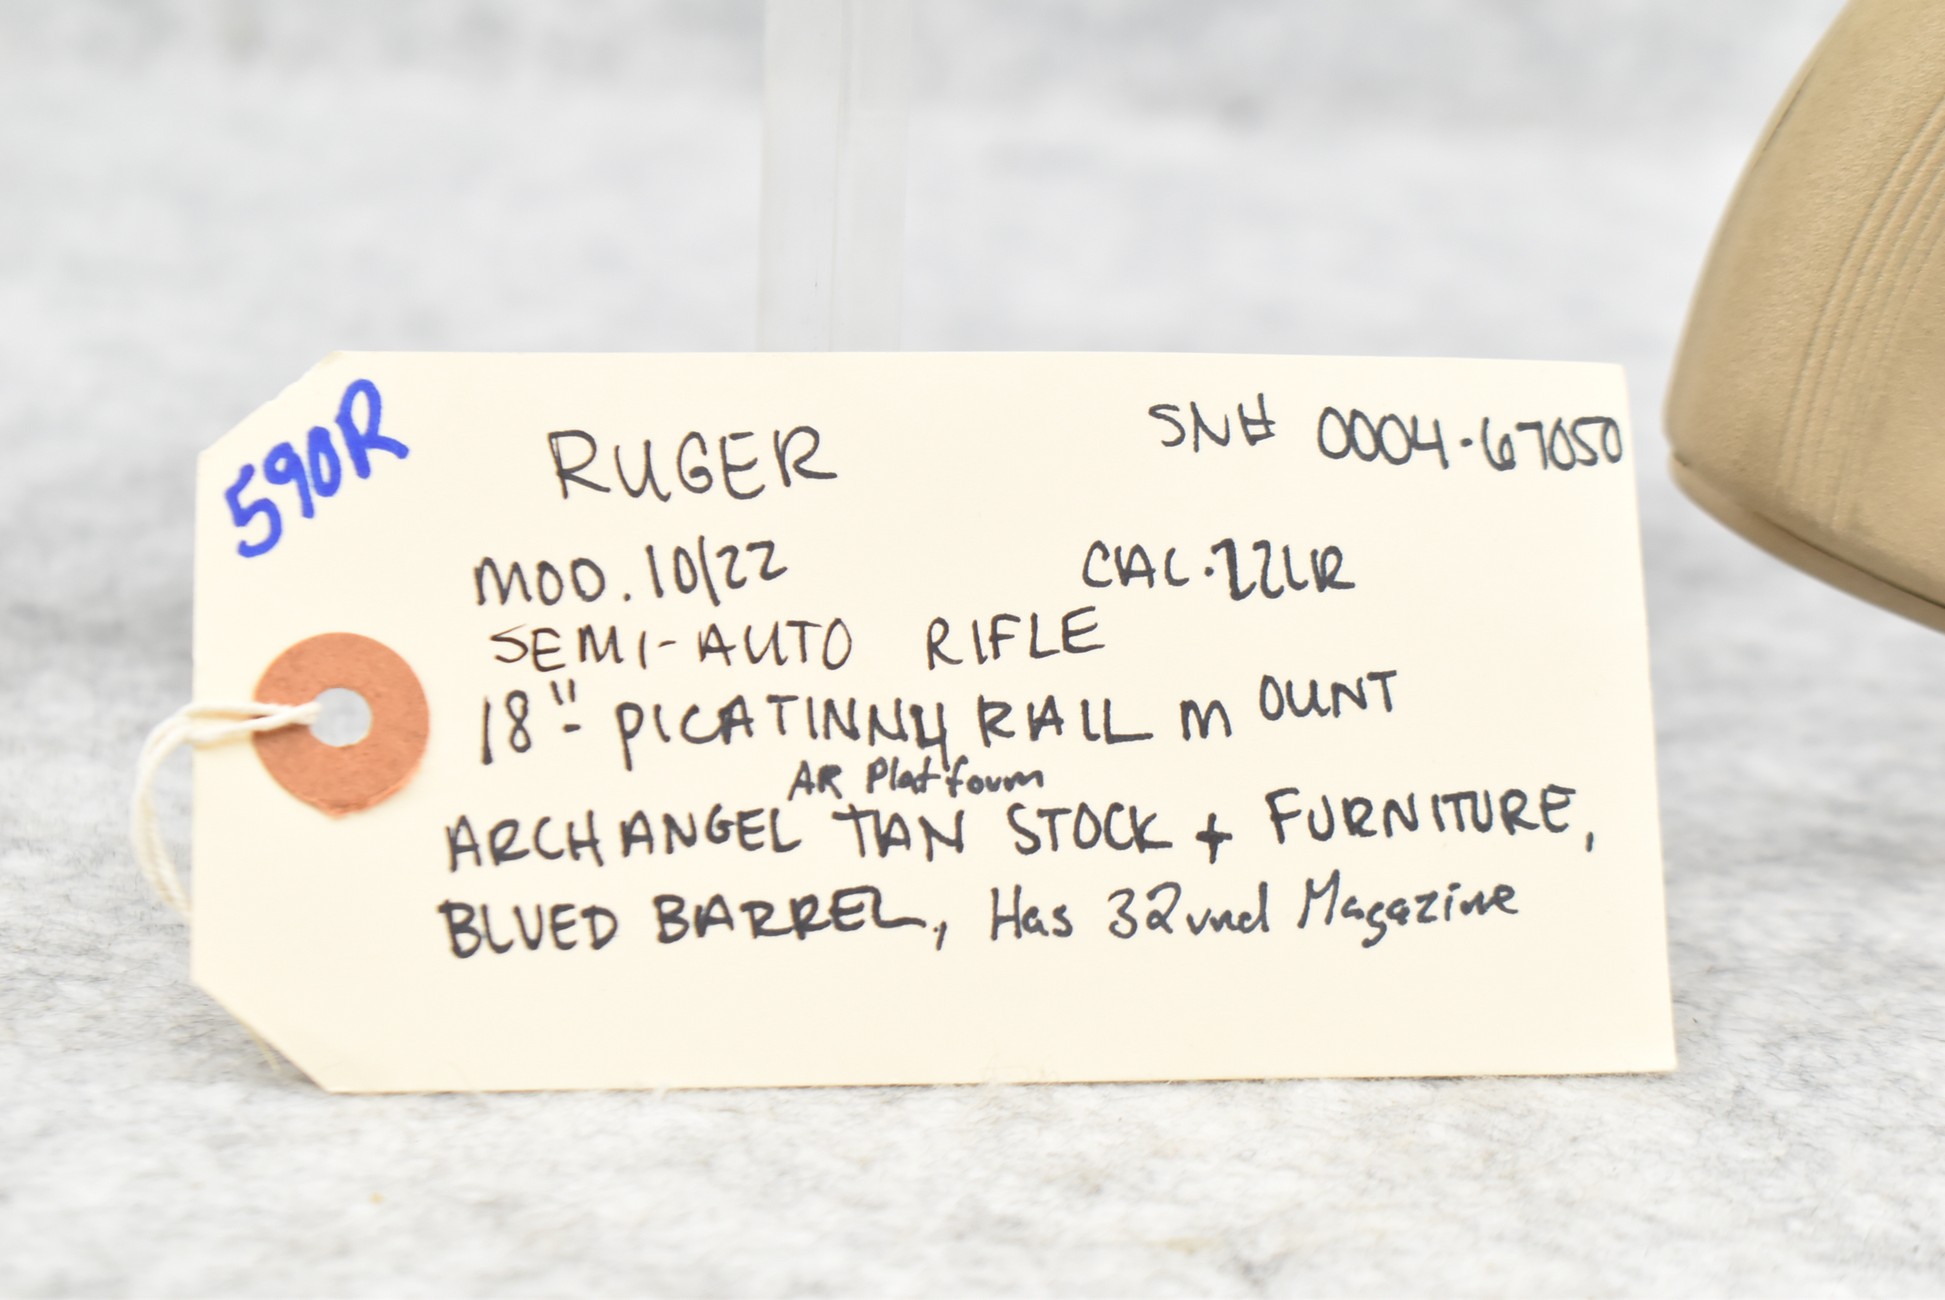 590R
RUGER
SN# 0004-67050
MOD. 10/22 CAL .22LR
SEMI-AUTO RIFLE
18"- PICATINNY RAIL MOUNT
AR Platform
ARCHANGEL TAN STOCK + FURNITURE,
BLUED BARREL, Has 32rnd Magazine